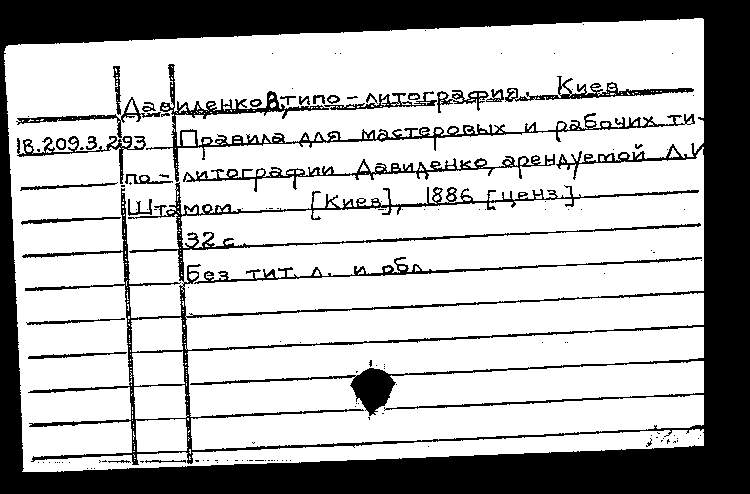 Давиденко В, типо-литография. Киев.
18.209.3.293 Правила для мастеровых и рабочих ти-
по-литографии Давиденко, арендуемой Л.И
Штамом. [Киев], 1886 [ценз.].
32 с.
Без тит. л. и обл.